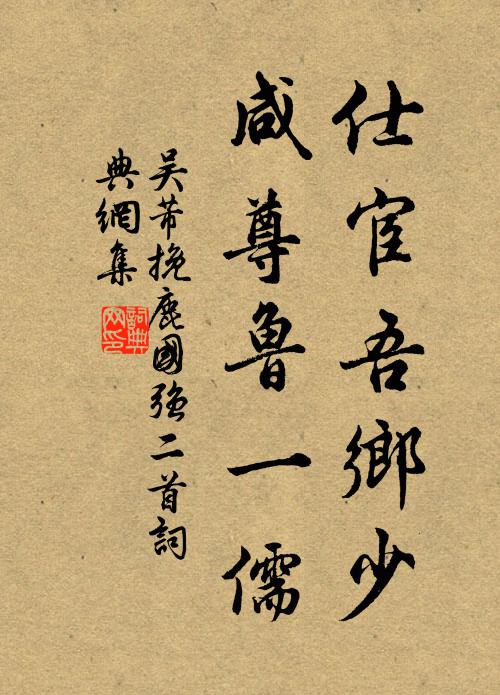 仕宦吾鄉少
咸尊魯一儒
吴芾挽鹿國強二首詞
典網集
詞典
网印